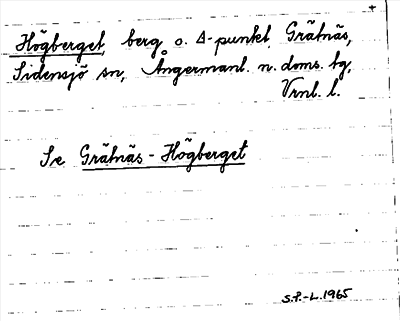 Högberget, berg o. Δ-punkt, Grätnäs,
Sidensjö sn, Ångermanl. n. doms. tg,
Vrnl. l.
Se Grätnäs - Högberget
S.P.-L. 1965